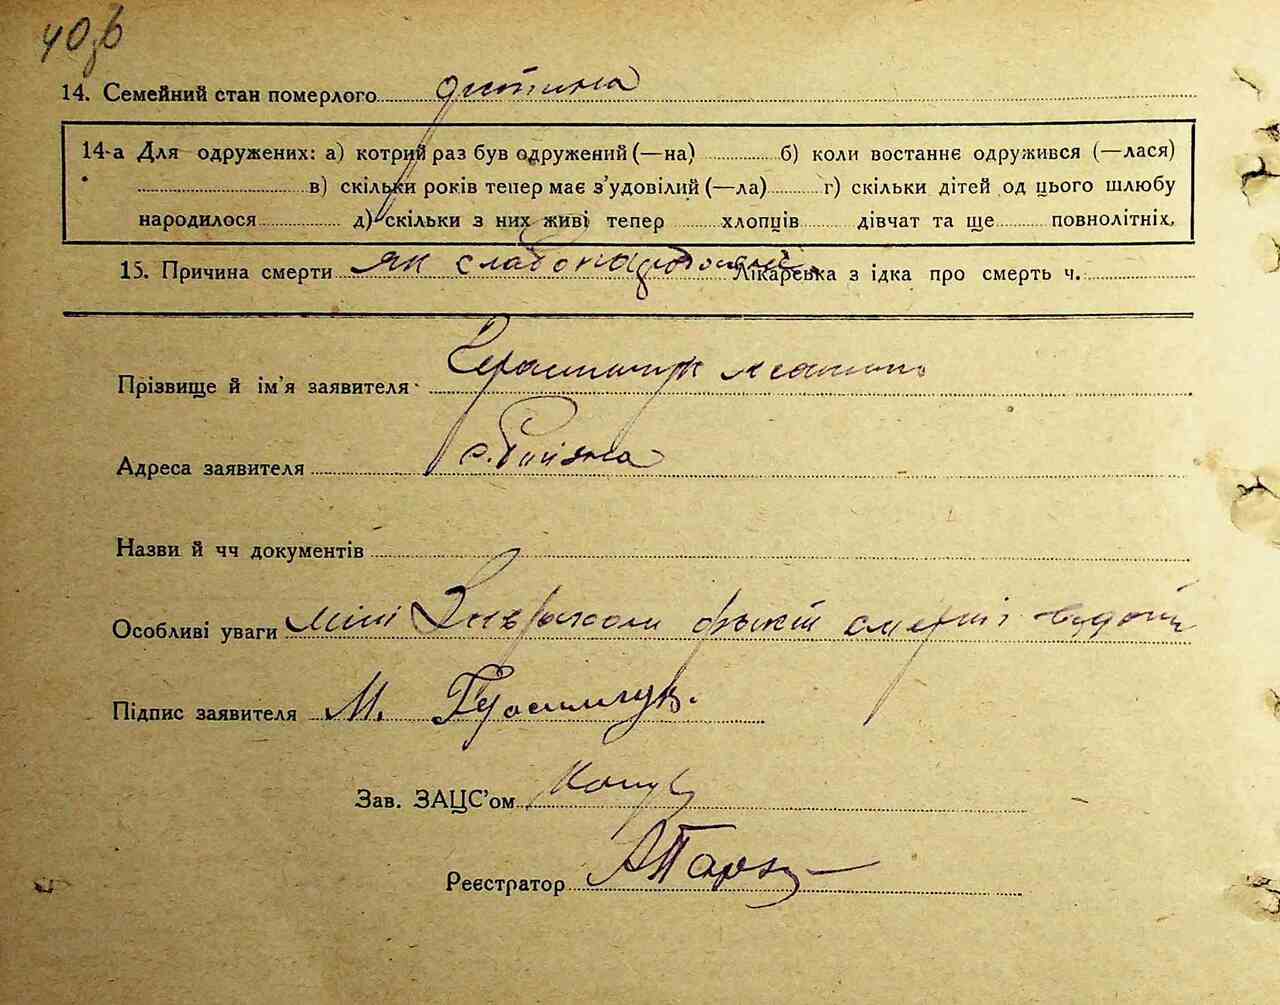 40зв
14. Семейний стан померлого дитина
14-а Для одружених: а) котрий раз був одружений (—на) б) коли востаннє одружився (—лася)
в) скільки років тепер має з'удовілий (—ла) г) скільки дітей од цього шлюбу
народилося д) скільки з них живі тепер хлопців дівчат та ще повнолітніх.
15. Причина смерти як слабонароджений Лікарська з ідка про смерть ч.
Прізвище й ім'я заявителя Герасимчук
Адреса заявителя с.
Назви й чч документів
Особливі уваги мені факт смерті
Підпис заявителя М. Герасимчук.
Зав. ЗАЦС'ом
Реєстратор